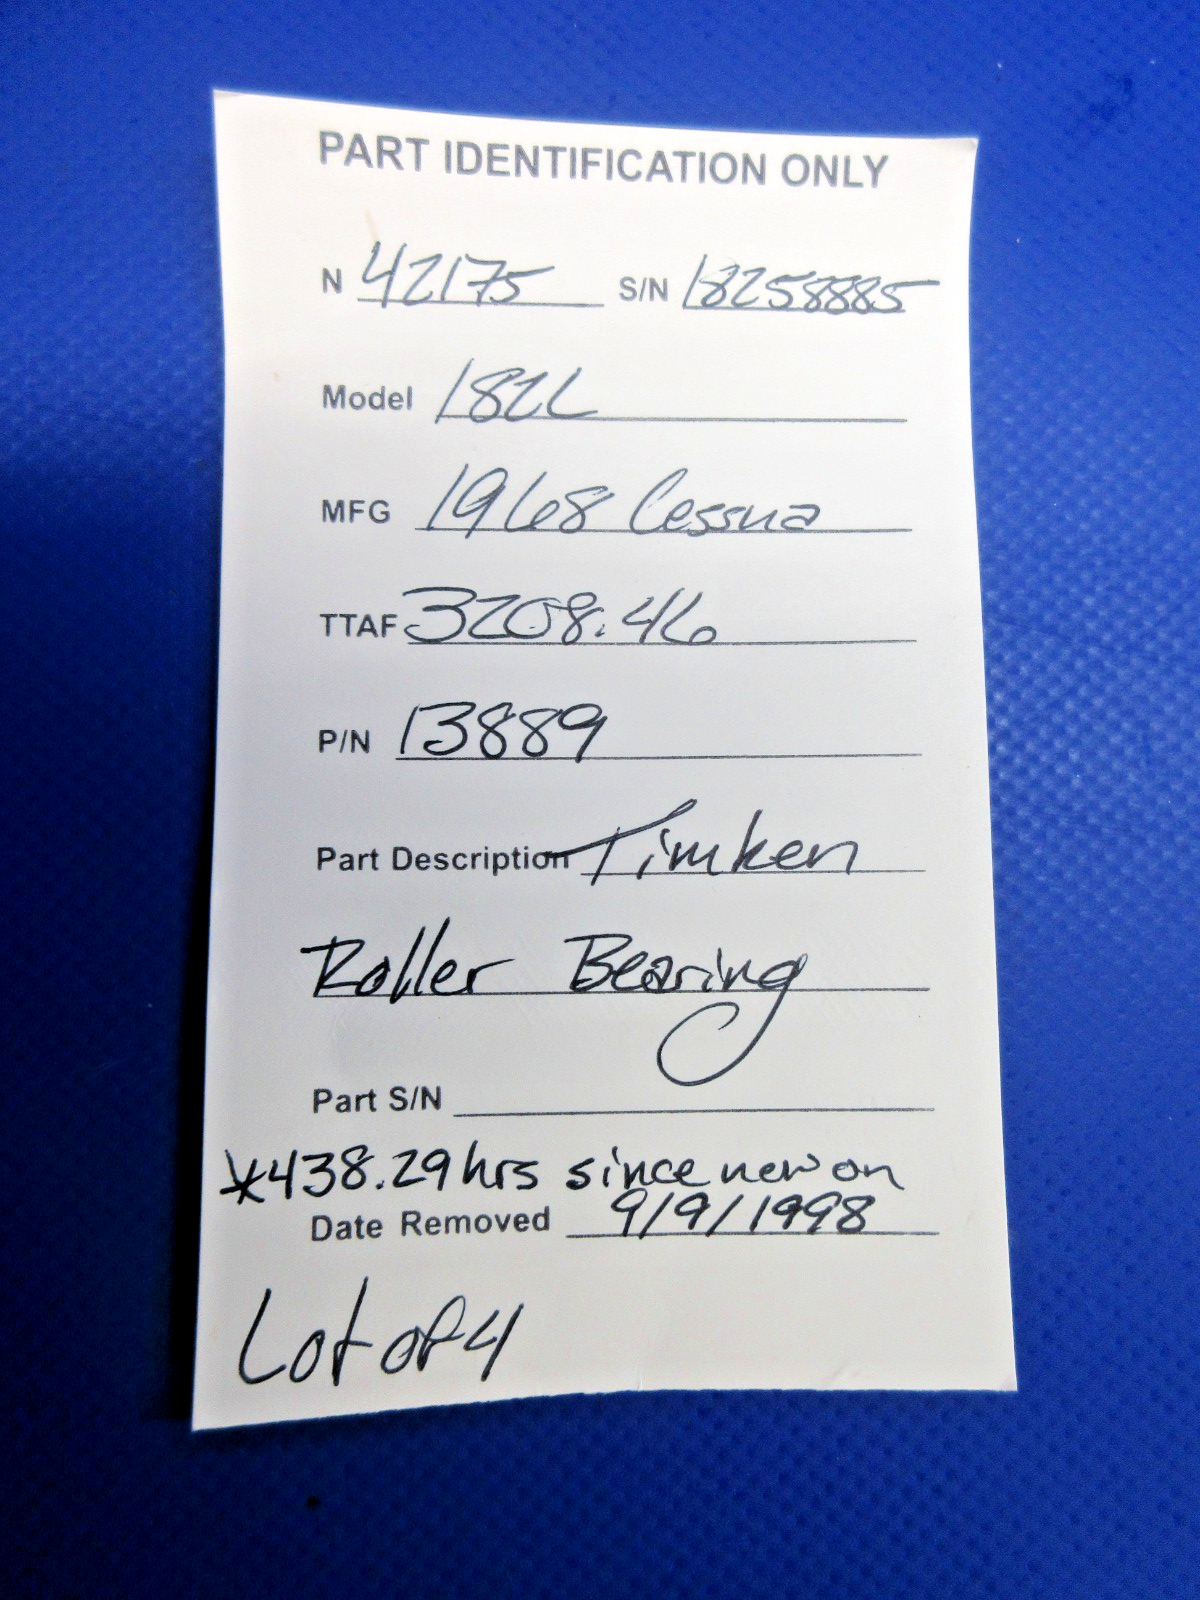 PART IDENTIFICATION ONLY
N 42175 S/N 18258885
Model 182L
MFG 1968 Cessna
TTAF 3208.46
P/N 13889
Part Description Timken
Roller Bearing
Part S/N
*438.29 hrs since new on
Date Removed 9/9/1998
Lot of 4